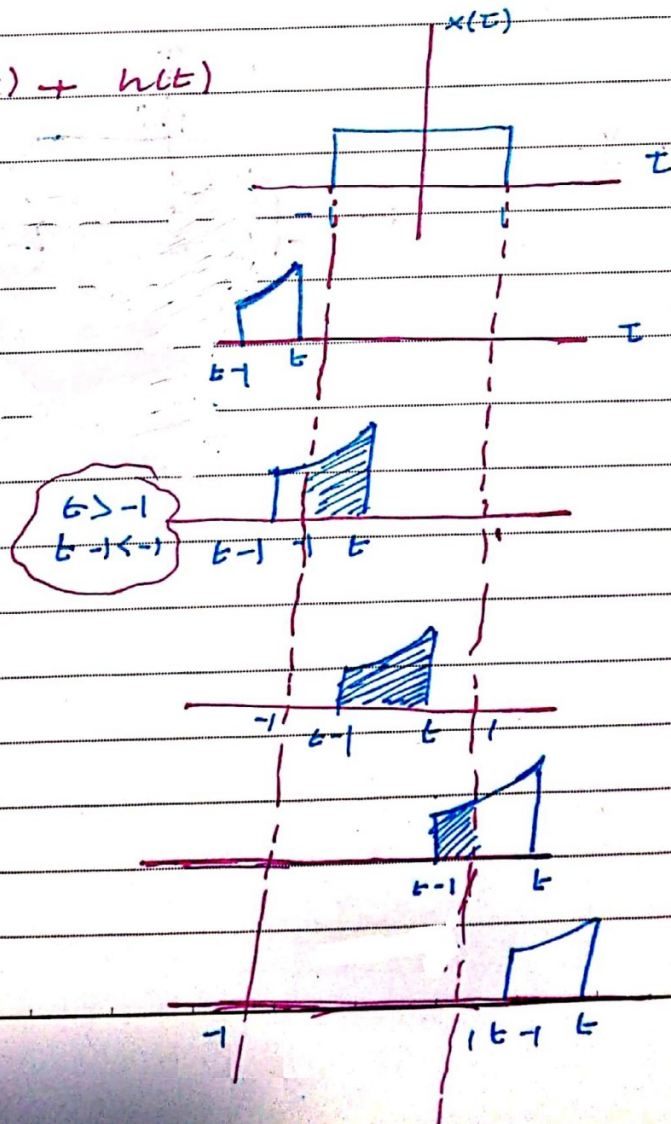 x(τ)
) + h(t)
τ
-1 1
τ
t-1 t
t > -1
t -1 < -1 t-1 -1 t 1
-1 t-1 t 1
t-1 t
-1 1 t-1 t